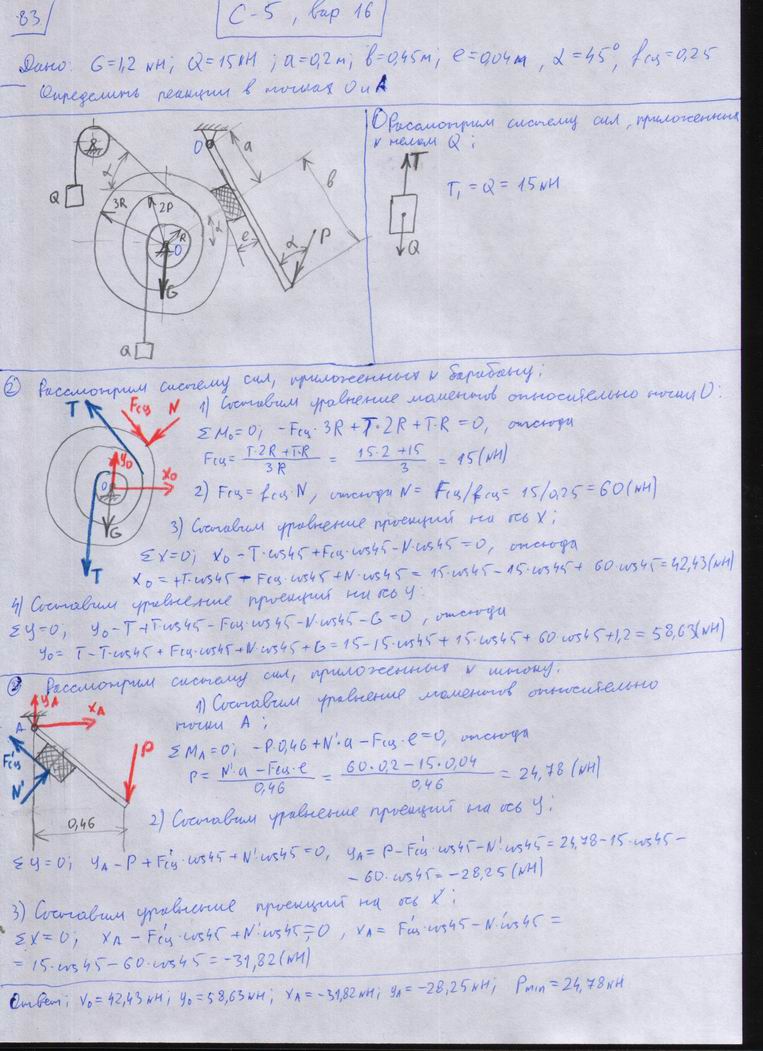 83
С-5, вар 16
Дано: G=1,2 кН; Q=15кН; a=0,2м; b=0,45м; e=0,04м, α=45°, fсц=0,25
Определить реакции в точках O и A
O
a
b
α
Q
3R
2P
R
O
G
α
e
α
P
Q
1) Рассмотрим систему сил, приложенных
к телам Q;
T
T₁ = Q = 15 кН
Q
2) Рассмотрим систему сил, приложенных к барабану;
T
Fсц
N
y₀
x₀
O
G
T
1) Составим уравнение моментов относительно точки O:
ΣM₀=0; -Fсц·3R+T·2R+T·R=0, отсюда
Fсц = (T·2R+T·R)/3R = (15·2+15)/3 = 15(кН)
2) Fсц=fсц·N, отсюда N=Fсц/fсц=15/0,25=60(кН)
3) Составим уравнение проекций на ось X;
ΣX=0; X₀-T·cos45+Fсц·cos45-N·cos45=0, отсюда
X₀=+T·cos45-Fсц·cos45+N·cos45=15·cos45-15·cos45+60·cos45=42,43(кН)
4) Составим уравнение проекций на ось y:
Σy=0; y₀-T+T·cos45-Fсц·cos45-N·cos45-G=0, отсюда
y₀=T-T·cos45+Fсц·cos45+N·cos45+G=15-15·cos45+15·cos45+60·cos45+1,2=58,63(кН)
3) Рассмотрим систему сил, приложенных к штоку.
yA
xA
A
F'сц
N'
P
0,46
1) Составим уравнение моментов относительно
точки A;
ΣMA=0; -P·0,46+N'·a-Fсц·e=0, отсюда
P=(N'·a-Fсц·e)/0,46 = (60·0,2-15·0,04)/0,46 = 24,78(кН)
2) Составим уравнение проекций на ось y;
Σy=0; yA-P+F'сц·cos45+N'·cos45=0, yA=P-F'сц·cos45-N'·cos45=24,78-15·cos45-
-60·cos45=-28,25(кН)
3) Составим уравнение проекций на ось X;
ΣX=0; XA-F'сц·cos45+N'·cos45=0, XA=F'сц·cos45-N'·cos45=
=15·cos45-60·cos45=-31,82(кН)
Ответ; X₀=42,43кН; y₀=58,63кН; XA=-31,82кН; yA=-28,25кН; Pmin=24,78кН